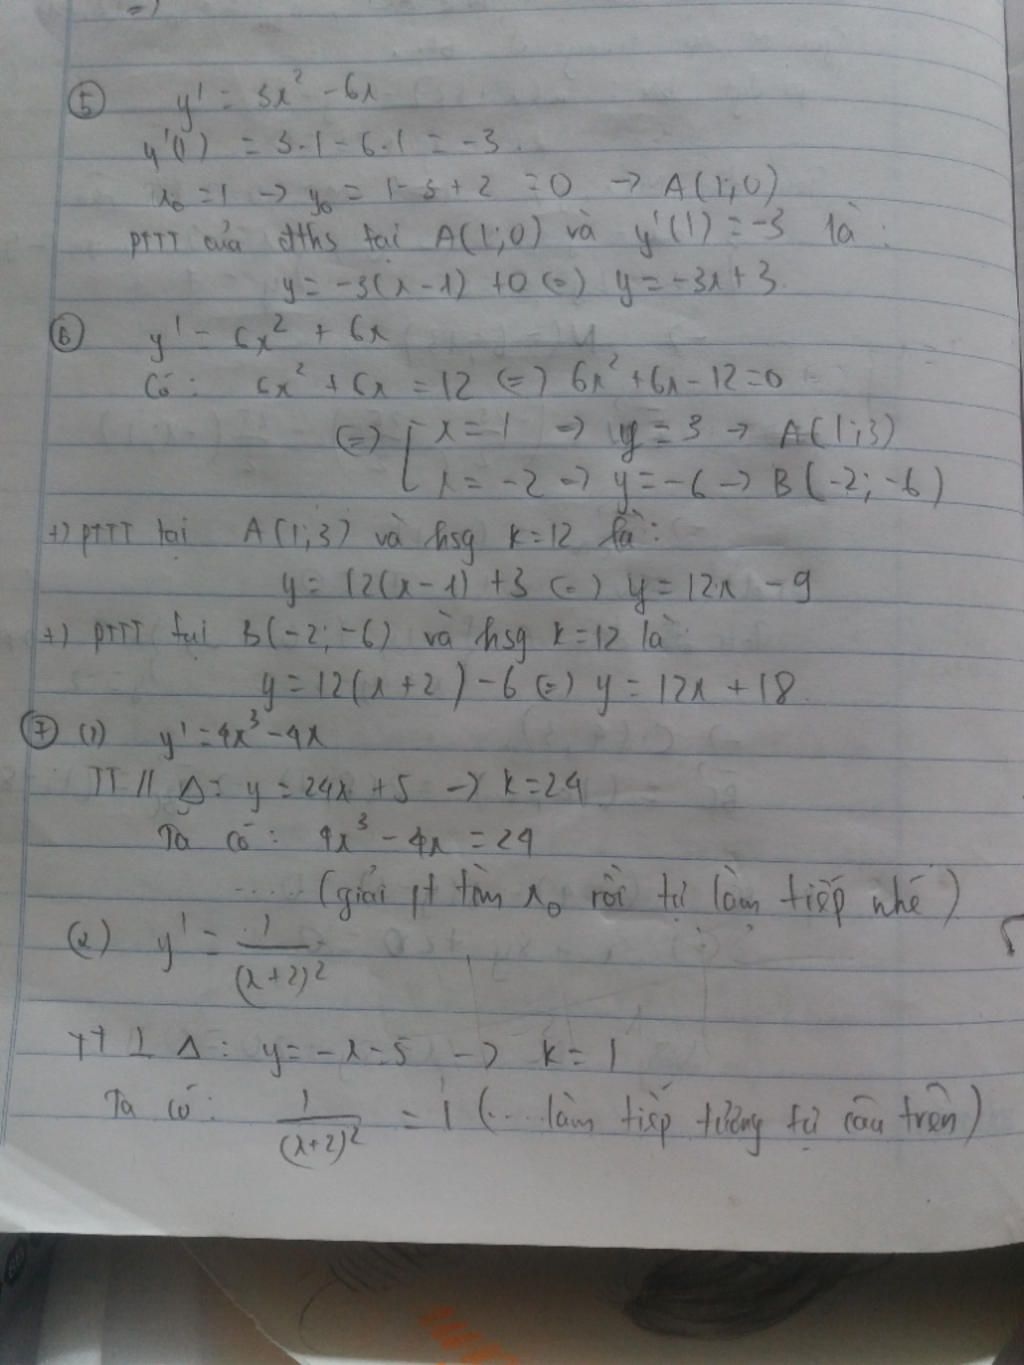 ⑤ y' = 3x² - 6x
y'(1) = 3.1 - 6.1 = -3.
x₀ = 1 → y₀ = 1 - 3 + 2 = 0 → A(1;0)
PTTT của đths tại A(1;0) và y'(1) = -3 là:
y = -3(x-1) + 0 (=) y = -3x + 3.
⑥ y' = 6x² + 6x
Có: 6x² + 6x = 12 (=) 6x² + 6x - 12 = 0
(=) [ x = 1 → y = 3 → A(1;3)
x = -2 → y = -6 → B(-2; -6)
+) PTTT tại A(1;3) và hsg k = 12 là:
y = 12(x-1) + 3 (=) y = 12x - 9
+) PTTT tại B(-2; -6) và hsg k = 12 là:
y = 12(x+2) - 6 (=) y = 12x + 18.
⑦ (1) y' = 4x³ - 4x
TT // Δ: y = 24x + 5 → k = 24
Ta có: 4x³ - 4x = 24
..... (giải pt tìm x₀ rồi tự làm tiếp nhé)
(2) y' = 1/(x+2)²
TT ⊥ Δ: y = -x - 5 → k = 1
Ta có: 1/(x+2)² = 1 (... làm tiếp tương tự câu trên)